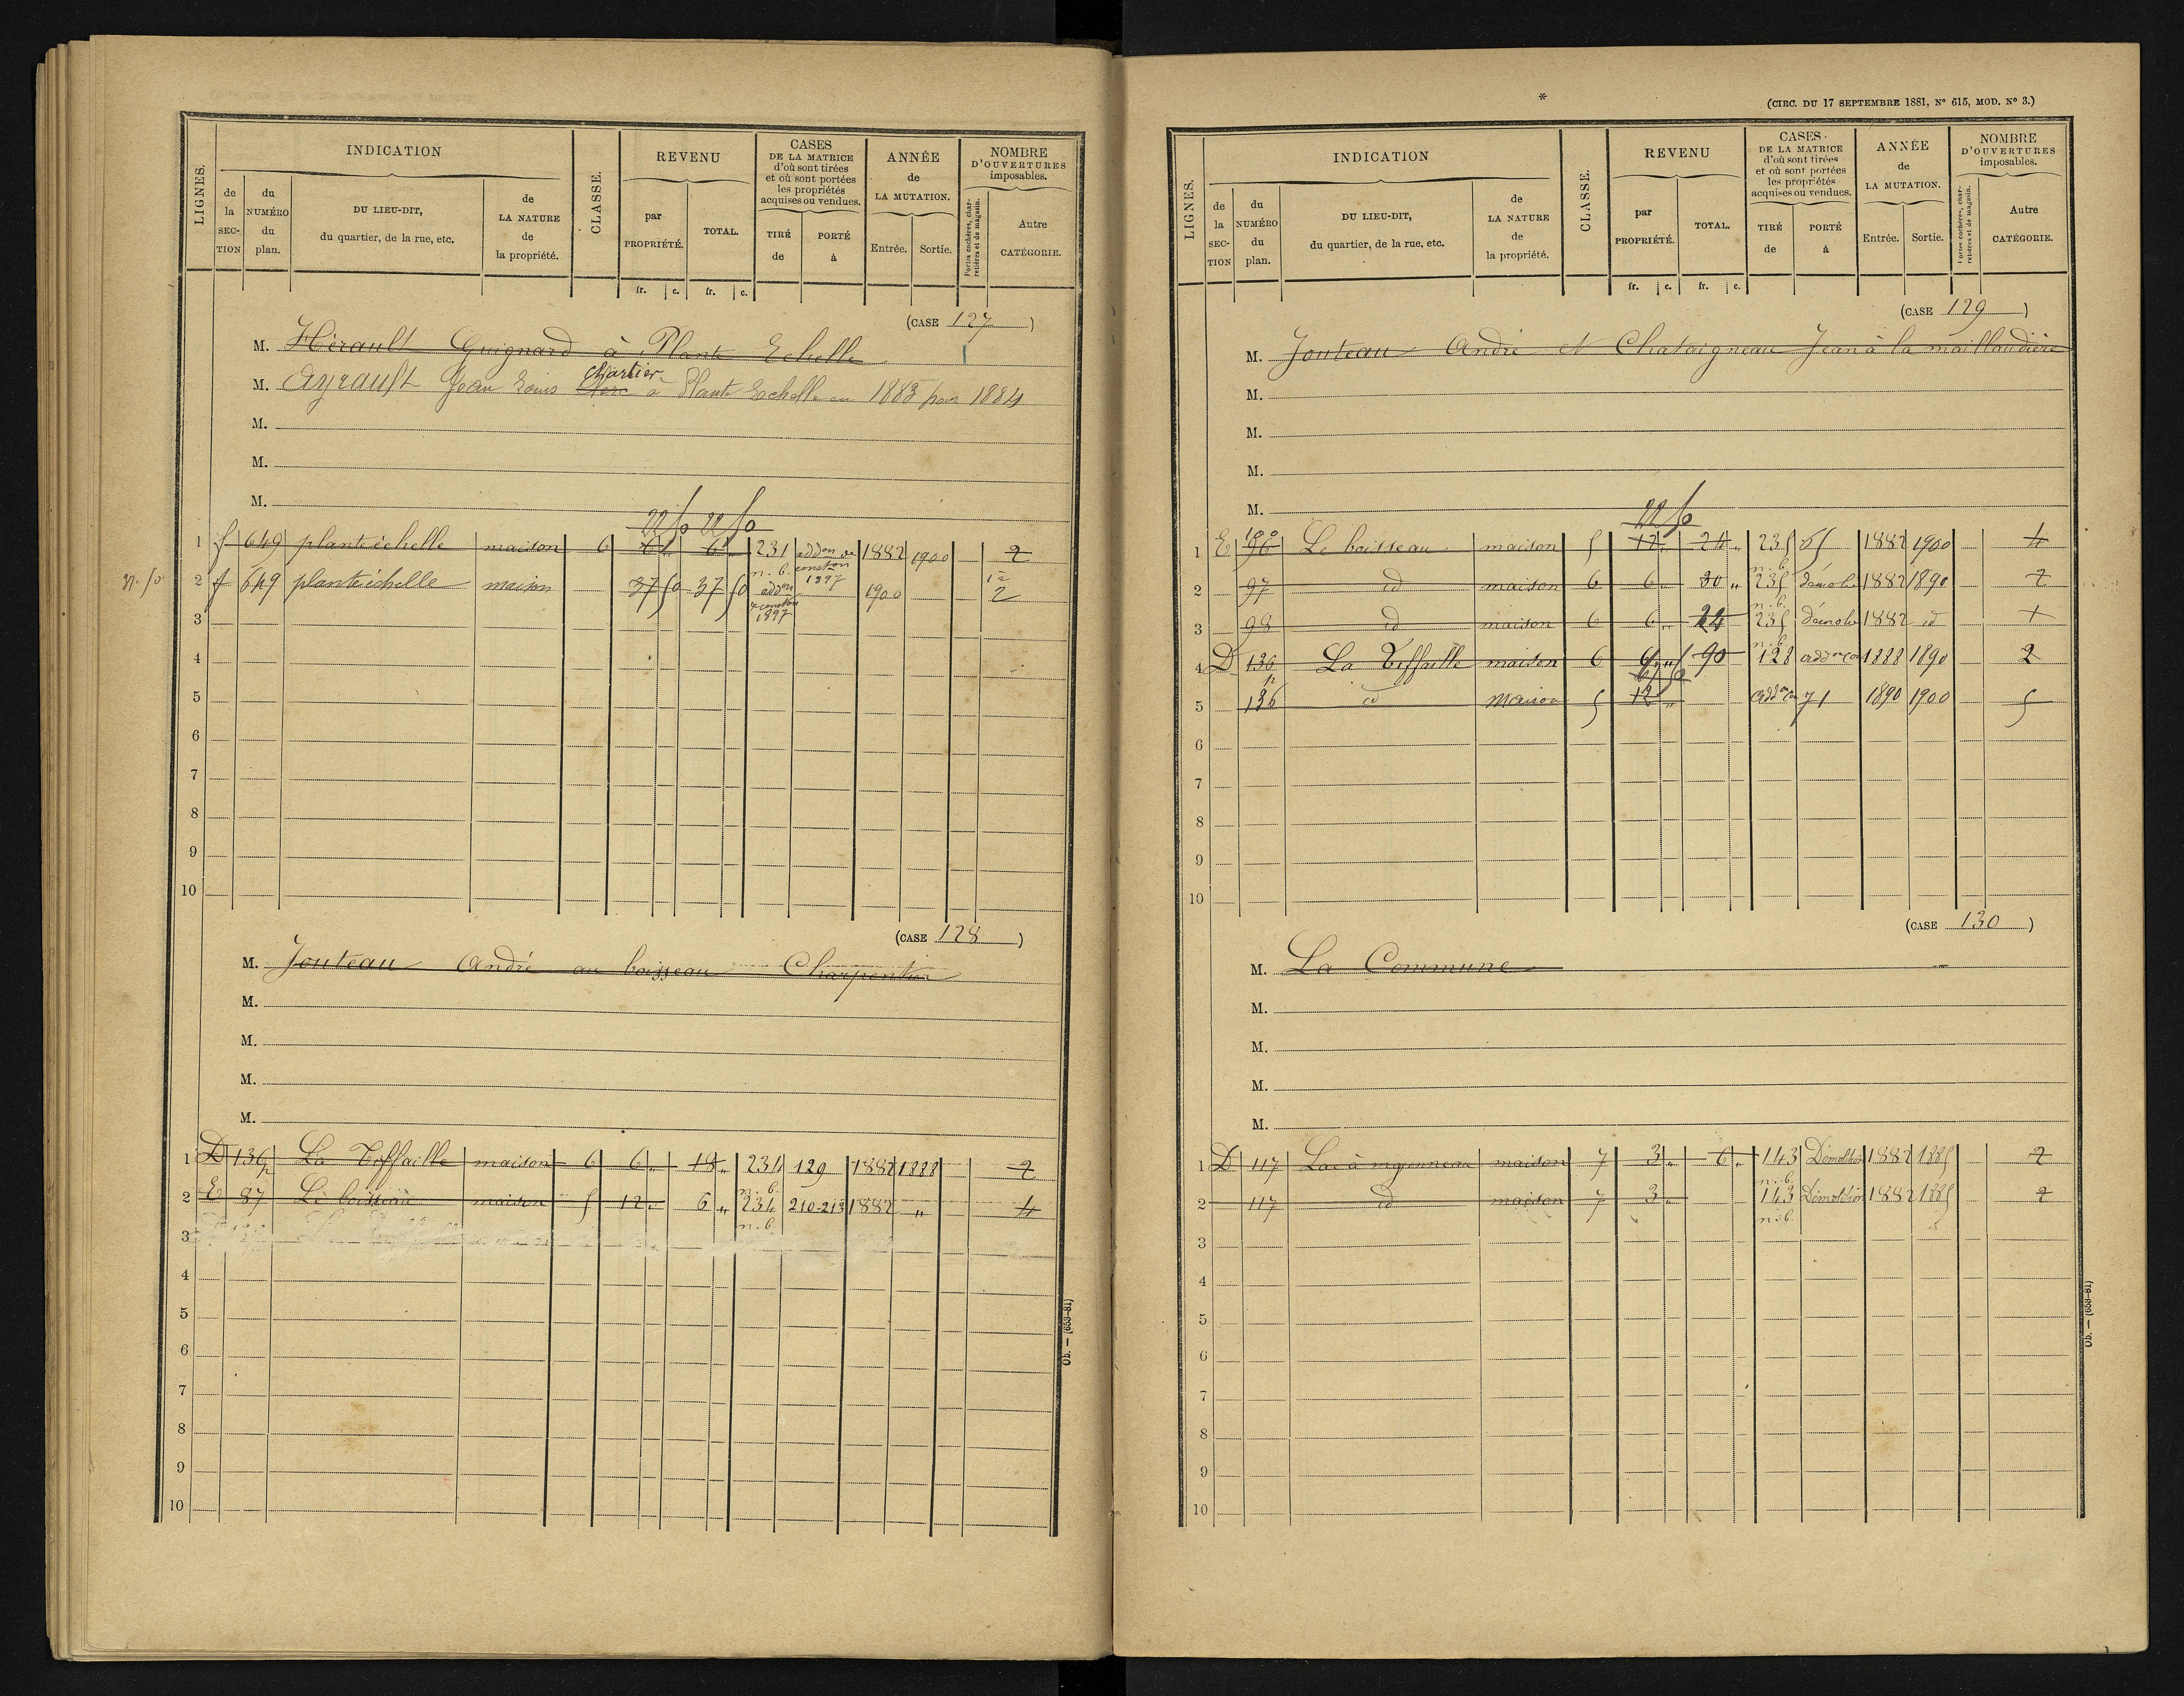 LIGNES.
INDICATION
de la SEC-TION
du NUMÉRO du plan.
DU LIEU-DIT, du quartier, de la rue, etc.
de LA NATURE de la propriété.
CLASSE.
REVENU
par PROPRIÉTÉ.
TOTAL.
fr. c. fr. c.
CASES DE LA MATRICE d'où sont tirées et où sont portées les propriétés acquises ou vendues.
TIRÉ de
PORTÉ à
ANNÉE de LA MUTATION.
Entrée. Sortie.
NOMBRE D'OUVERTURES imposables.
Portes cochères, charretières et de magasin.
Autre CATÉGORIE.
(CASE 127)
M. Hérault Guignard à Plante Echelle
Chartier
M. Ayrault Jean Louis Clerc à Plante Echelle en 1883 pour 1884
M.
M.
M.
22 50 22 50
1 f 649 plantéchelle maison 6 6 " 6 " 231 addon de 1882 1900 2
n. b. conston 1897
2 f 649 plantéchelle maison 37 50 37 50 addon conston 1897 1900 2
3
4
5
6
7
8
9
10
(CASE 128)
M. Jouteau André au boisseau Charpentier
M.
M.
M.
M.
1 D 136p La Tiffaille maison 6 6 " 18 " 234 129 1882 1888 2
n. b.
2 E 87 Le boisseau maison 5 12 " 6 " 234 210-213 1882 " 4
n. b.
3
4
5
6
7
8
9
10
Ob. — (653-81)
*
(CIRC. DU 17 SEPTEMBRE 1881, N° 615, MOD. N° 3.)
LIGNES.
INDICATION
de la SEC-TION
du NUMÉRO du plan.
DU LIEU-DIT, du quartier, de la rue, etc.
de LA NATURE de la propriété.
CLASSE.
REVENU
par PROPRIÉTÉ.
TOTAL.
fr. c. fr. c.
CASES DE LA MATRICE d'où sont tirées et où sont portées les propriétés acquises ou vendues.
TIRÉ de
PORTÉ à
ANNÉE de LA MUTATION.
Entrée. Sortie.
NOMBRE D'OUVERTURES imposables.
Portes cochères, charretières et de magasin.
Autre CATÉGORIE.
(CASE 129)
M. Jouteau André et Chataigneau Jean à la maillaudière
M.
M.
M.
M.
22 50
1 E 96 Le boisseau maison 5 12 " 24 " 235 1882 1900 4
n. b.
2 97 id maison 6 6 " 30 " 235 démoln 1882 1890 2
n. b.
3 98 id maison 6 6 " 24 235 démoln 1882 id 1
n. b.
4 D 136 La Tiffaille maison 6 6 " 90 128 addon con 1888 1890 2
5 136 id maison 5 12 " addon con 71 1890 1900 5
6
7
8
9
10
(CASE 130)
M. La Commune
M.
M.
M.
M.
1 D 117 maison 7 3 " 6 " 143 Démolition 1882 1885 2
n. b.
2 117 id maison 7 3 " 143 Démolition 1882 1885 2
n. b.
3
4
5
6
7
8
9
10
Ob. — (653-81)